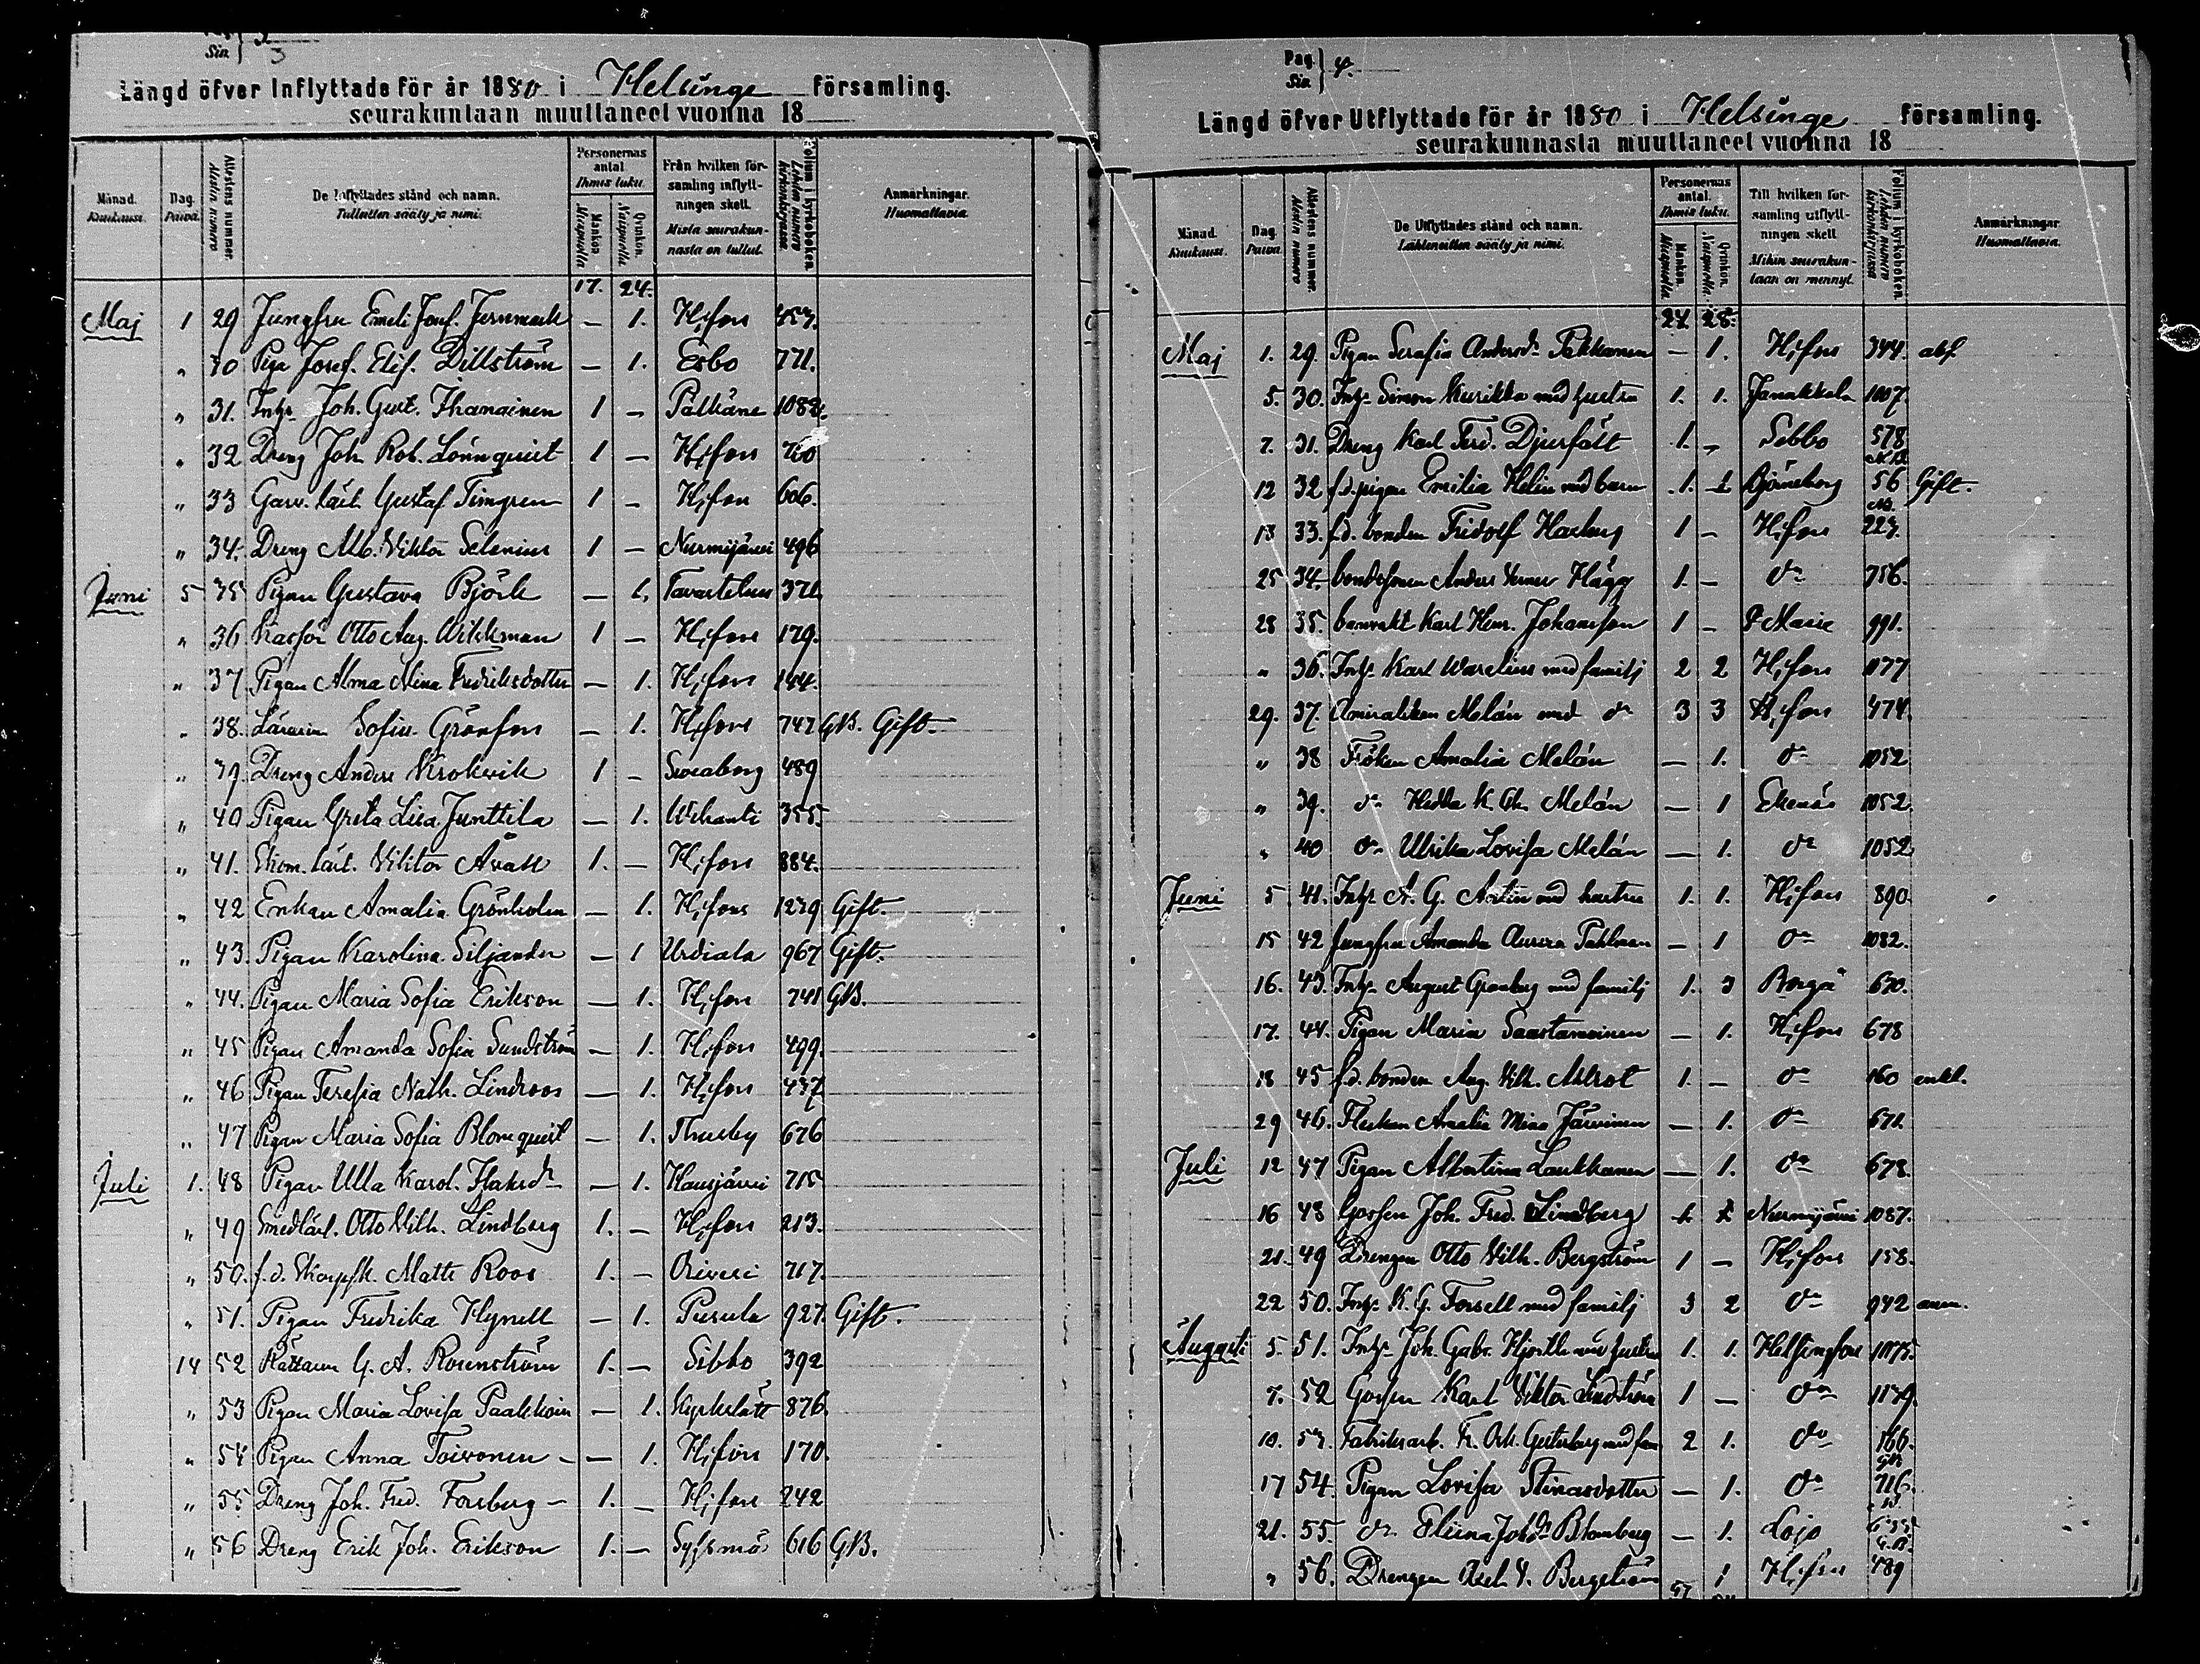 Sir. 3
Längd öfver Inflyttade för år 1880 i Helsinge församling.
seurakuntaan muuttaneet vuonna 18
Månad. Kuukausi.
Dag. Päivä.
Attestens nummer. Alestin numero
De Inflyttades stånd och namn. Tulleitten sääty ja nimi.
Personernas antal Ihmis luku.
Mankön Miespuolia
Qvinkön. Naispuolia
Från hvilken församling inflyttningen skett. Mistä seurakunnasta on tullut.
Folium i kyrkoboken. Lehden numero kirkonkirjassa
Anmärkningar. Huomattavia.
17. 24.
Maj 1 29 Jungfru Emeli Josef. Jernmark — 1. H:fors 457.
" 30 Piga Josef. Elis. Dillström — 1. Esbo 771.
" 31. Inhs Joh. Gust. Ihanainen 1 — Pälkäne 1082.
" 32 Dreng Joh. Rob. Lönnquist 1 — H:fors 760
" 33 Garv. lärl. Gustaf Timgren 1 — H:fors 606.
" 34. Dreng Alb. Viktor Selenius 1 — Nurmijärvi 496
Juni 5 35 Pigan Gustava Björk — 1. Tavastehus 371.
" 36 Otto Aug. Wikkman 1 — H:fors 179.
" 37 Pigan Alma Mina Fredriksdotter — 1. H:fors 144.
" 38. Lärarin Sofia Grönfors — 1. H:fors 747 GB. Gift.
" 39. Dreng Anders Krokvik 1 — Sveaborg 489
" 40 Pigan Greta Lisa Junttila — 1. Wihanti 355.
" 41. Skom. lärl. Viktor 1. — H:fors 884.
" 42 Enkan Amalia Grönholm — 1. H:fors 1239 Gift.
" 43. Pigan Karolina Siljander — 1 Urdiala 967 Gift.
" 44. Pigan Maria Sofia Erikson — 1. H:fors 741 GB.
" 45 Pigan Amanda Sofia Sundström — 1. H:fors 499.
" 46 Pigan Teresia Nath. Lindroos — 1. H:fors 437
" 47 Pigan Maria Sofia Blomquist — 1. Thusby 676
Juli 1. 48 Pigan Ulla Karol. — 1. Hausjärvi 715
" 49 Smedlärl. Otto Vilh. Lindberg 1. — H:fors 213.
" 50. f.d. Matts Roos 1. — Orivesi 717.
" 51. Pigan Fredrika Hynell — 1. Pusula 927. Gift.
14 52 Rättaren G. A. Rosenström 1. — Sibbo 392
" 53 Pigan Maria Lovisa — 1. Kyrkslätt 876.
" 54 Pigan Anna Toivonen — 1. H:fors 170.
" 55 Dreng Joh. Fred. Forsberg — 1. — H:fors 242
" 56 Dreng Erik Joh. Erikson 1. — Sysmä 616 GB.
Pag. Sir. 4.
Längd öfver Utflyttade för år 1880 i Helsinge församling.
seurakunnasta muuttaneet vuonna 18
Månad. Kuukausi.
Dag. Päivä.
Attestens nummer. Alestin numero
De Utflyttades stånd och namn. Lähteneitten sääty ja nimi.
Personernas antal. Ihmis luku.
Mankön. Miespuolia
Qvinkön. Naispuolia.
Till hvilken församling utflyttningen skett Mihin seurakuntaan on mennyt.
Folium i kyrkoboken. Lehden numero kirkonkirjassa
Anmärkningar. Huomattavia.
27. 28.
Maj 1. 29. Pigan Serafia Andersdr Pakkanen — 1. H:fors 344.
5. 30. Inhs Simon Kurikka med hustru 1. 1. Janakkala 1007.
7. 31. Dreng Karl Ferd. Djurfält 1. — Sibbo 578
12 32 f.d. pigan Emilia Helin med barn 1. 1 Björneborg 56 Gift.
13 33. f.d. bonden Fridolf Haxberg 1 — H:fors 223.
25 34. bondesonen Anders Verner Hägg 1. — do 756.
28 35. banvakt Karl Henr. Johansson 1 — S:t Marie 991.
" 36. Inhs Karl Warelius med familj 2 2 H:fors 1177
29. 37. Amiralskan Melán med do 3 3 H:fors 474.
" 38 Fröken Amalia Melán — 1. do 1052
" 39. do Hedda K. Melán — 1 Ekenäs 1052
" 40 do Ulrika Lovisa Melán — 1. do 1052
Juni 5 41. Inhs A. G. med hustru 1. 1. H:fors 890.
15 42 Jungfru Amanda Aurora Pahlman — 1 do 1082.
16. 43. Inhs August Granberg med familj 1. 3 Borgå 670.
17. 44. Pigan Maria Saastamoinen — 1. H:fors 678
18 45 f.d. bonden Aug. Vilh. Alrot 1. — do 160 enkl.
29 46. Flickan Amalia Mina Järvinen — 1. do 671.
Juli 12 47 Pigan Albertina Laukkanen — 1. do 678.
16 48 Gossen Joh. Fred. Lindberg 1 1 Nurmijärvi 1087.
21. 49 Drengen Otto Vilh. Bergström 1 — H:fors 158.
22 50. Inhs K. G. Forsell med familj 3 2 do 942
Augusti 5. 51. Inhs Joh. Gabr. Hjorth med hustru 1. 1. Helsingfors 1175.
7. 52 Gossen Karl Viktor Lindström 1 — do 1179.
10. 53. Fabriksarb. K. med fam 2 1. do 166.
17 54. Pigan Lovisa Stinasdotter — 1. do 716.
21. 55. do Eliina Johdr Blomberg — 1. Lojo
" 56. Drengen Axel V. Bergström 1 H:fors 789